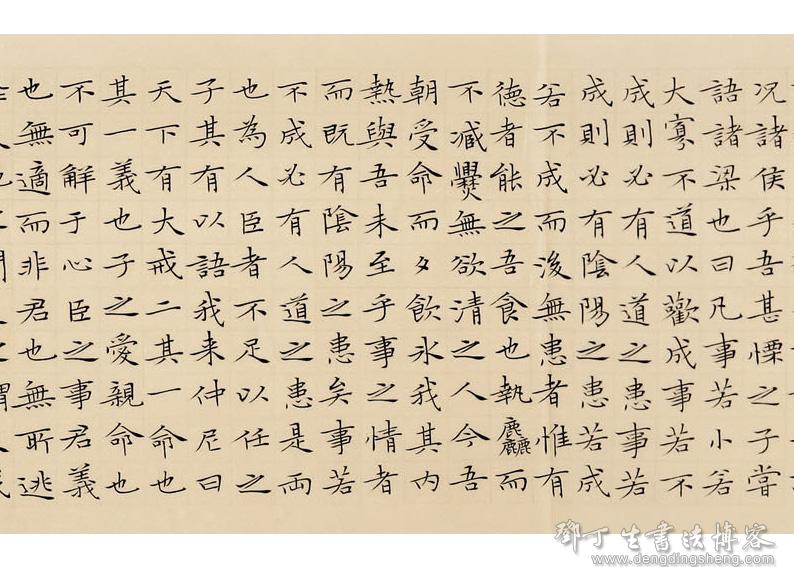 況諸侯乎吾甚慄之子嘗
語諸梁也曰凡事若小若
大寡不道以歡成事若不
成則必有人道之患事若
成則必有陰陽之患若成
若不成而後無患者惟有
德者能之吾食也執麤而
不減爨無欲清之人今吾
朝受命而夕飲冰我其內
熱與吾未至乎事之情者
而既有陰陽之患矣事若
不成必有人道之患是兩
也為人臣者不足以任之
子其有以語我來仲尼曰
天下有大戒二其一命也
其一義也子之愛親命也
不可解于心臣之事君義
也無適而非君也無所逃
鄧丁生書法博客
www.dengdingsheng.com